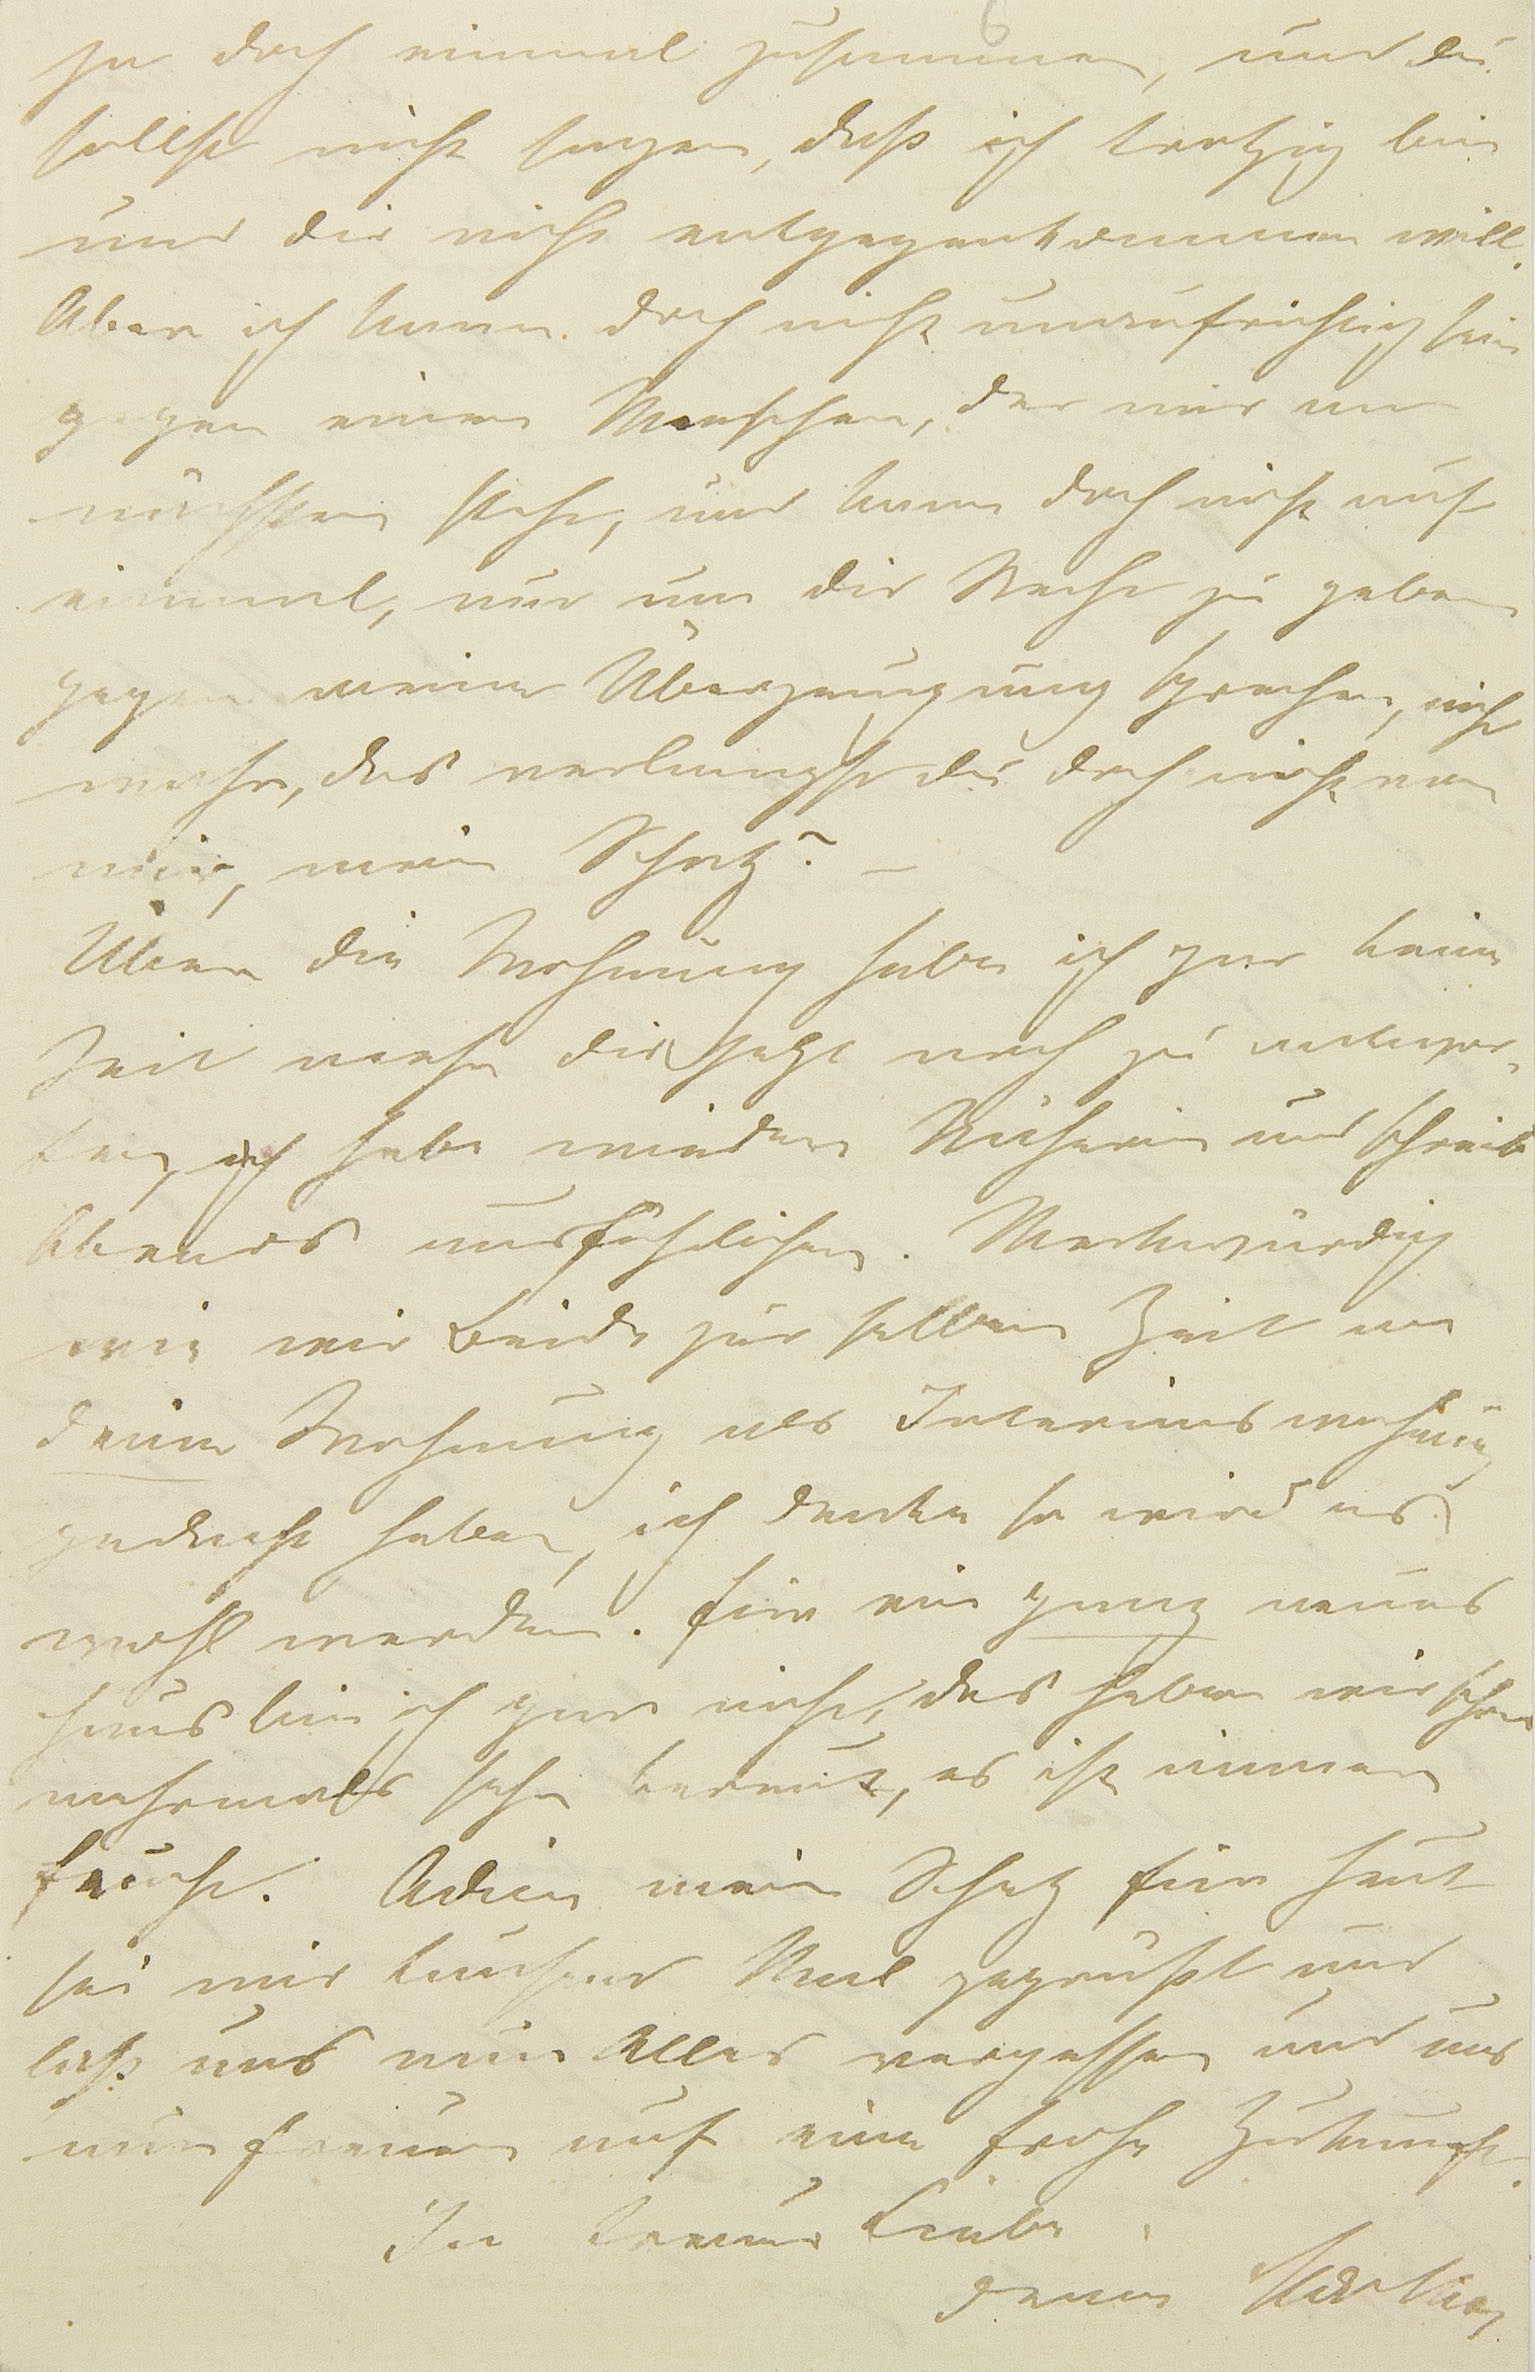 ja doch einmal zusammen, und du
sollst nicht sagen, daß ich trotzig bin
und dir nicht entgegenkommen will.
Aber ich kann doch nicht unaufrichtig sein
gegen einen Menschen, der mir am
nächsten steht, und kann doch nicht auf
einmal, nur um dir Recht zu geben
gegen meine Überzeugung sprechen, nicht
wahr, das verlangst du doch nicht von
mir, mein Schatz? –
Über die Wohnung habe ich gar keine
Zeit mehr dir jetzt noch zu antwor-
ten, ich habe wieder Näherin und schreib
Abends ausführlicher. Merkwürdig
wie wir Beide zur selben Zeit an
deine Wohnung als Interimswohnung
gedacht haben, ich denke so wird es
wohl werden. Für ein ganz neues
Haus bin ich gar nicht, das haben wir schon
mehrmals sehr bereut, es ist immer
feucht. Adieu mein Schatz für heut
sei mir tausend Mal gegrüßt und
laß uns nun Alles vergessen und uns
nur freuen auf eine frohe Zukunft.
In treuer Liebe
deine